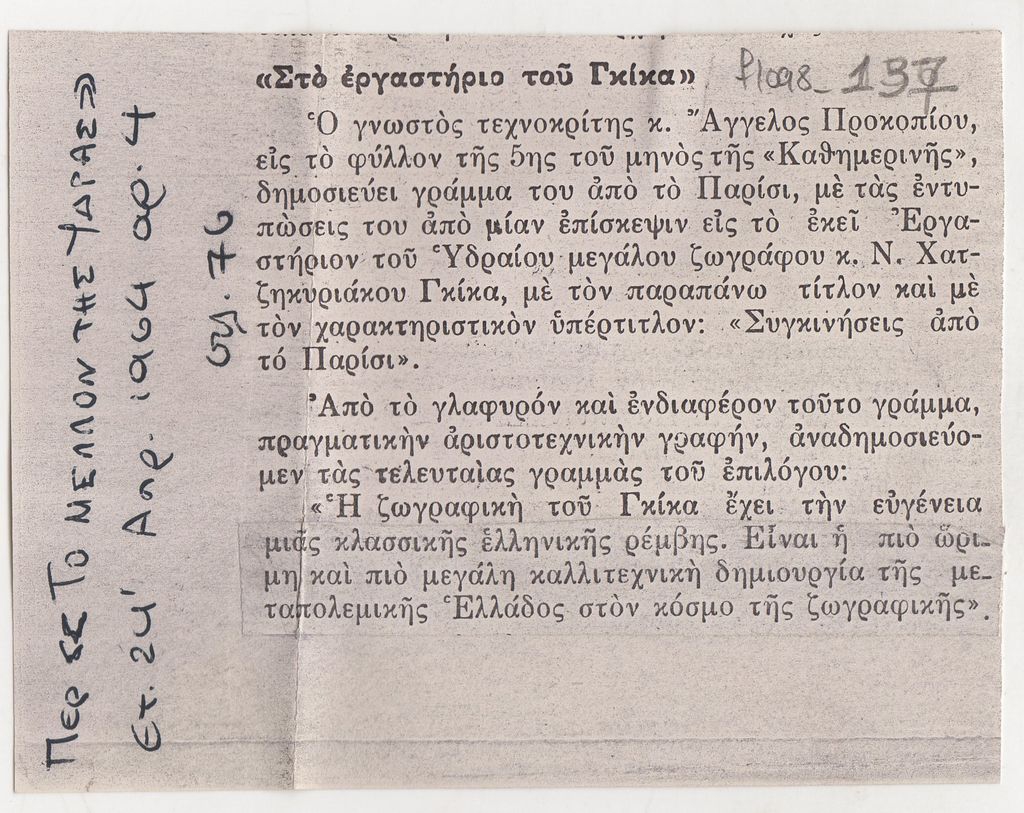 «Στὸ ἐργαστήριο τοῦ Γκίκα»
137
Ὁ γνωστὸς τεχνοκρίτης κ. Ἄγγελος Προκοπίου,
εἰς τὸ φύλλον τῆς 5ης τοῦ μηνὸς τῆς «Καθημερινῆς»,
δημοσιεύει γράμμα του ἀπὸ τὸ Παρίσι, μὲ τὰς ἐντυ-
πώσεις του ἀπὸ μίαν ἐπίσκεψιν εἰς τὸ ἐκεῖ Ἐργα-
στήριον τοῦ Ὑδραίου μεγάλου ζωγράφου κ. Ν. Χατ-
ζηκυριάκου Γκίκα, μὲ τὸν παραπάνω τίτλον καὶ μὲ
τὸν χαρακτηριστικὸν ὑπέρτιτλον: «Συγκινήσεις ἀπὸ
τό Παρίσι».
Ἀπὸ τὸ γλαφυρόν καὶ ἐνδιαφέρον τοῦτο γράμμα,
πραγματικὴν ἀριστοτεχνικὴν γραφήν, ἀναδημοσιεύο-
μεν τὰς τελευταίας γραμμὰς τοῦ ἐπιλόγου:
«Ἡ ζωγραφικὴ τοῦ Γκίκα ἔχει τὴν εὐγένεια
μιᾶς κλασσικῆς ἑλληνικῆς ρέμβης. Εἶναι ἡ πιὸ ὥρι-
μη καὶ πιὸ μεγάλη καλλιτεχνικὴ δημιουργία τῆς με-
ταπολεμικῆς Ἑλλάδος στὸν κόσμο τῆς ζωγραφικῆς».
Περ. «ΤΟ ΜΕΛΛΟΝ ΤΗΣ ΥΔΡΑΣ»
Ετ. 24' Απρ. 1964 αρ. 4
σελ. 76